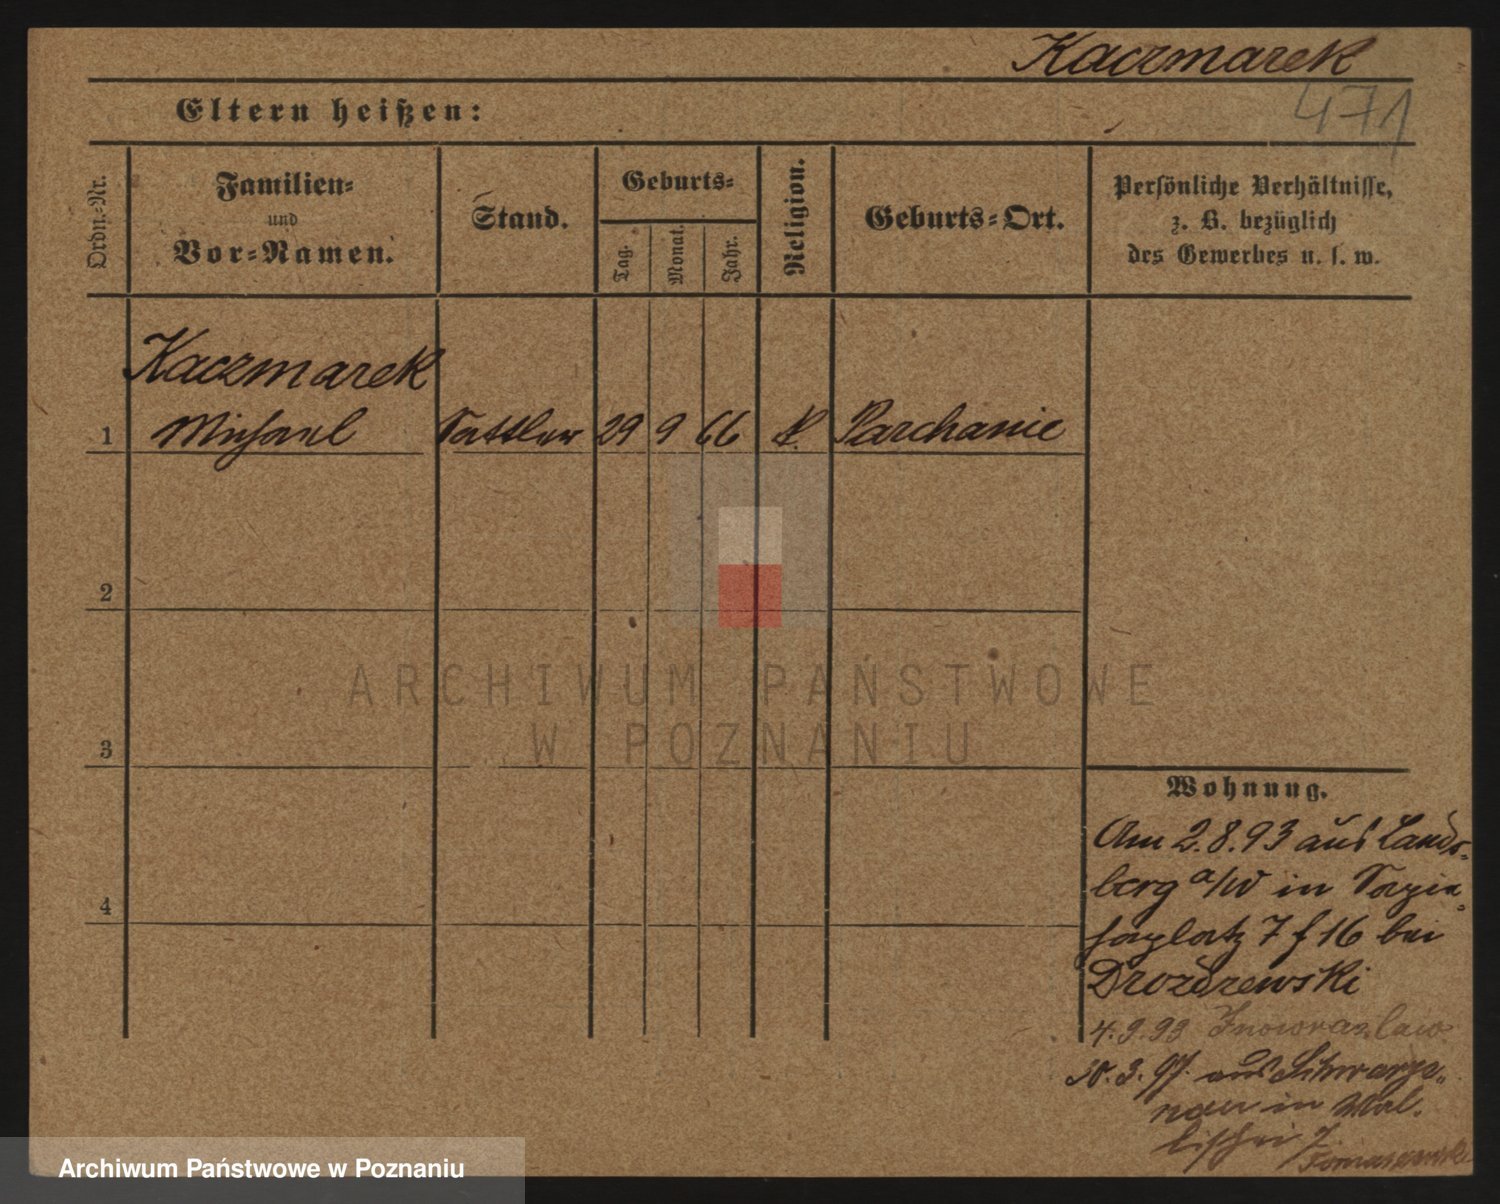 Kaczmarek
471
Eltern heißen:
Ordn.-Nr.
Familien-
und
Vor-Namen.
Stand.
Geburts-
Tag.
Monat.
Jahr.
Religion.
Geburts-Ort.
Persönliche Verhältnisse,
z. B. bezüglich
des Gewerbes u. s. w.
Kaczmarek
1 Michael Sattler 29 9 66 k. Parchanie
2
3
4
ARCHIWUM PAŃSTWOWE
W POZNANIU
Wohnung.
Am 2.8.93 aus Lands-
berg a/W in Sapie-
haplatz 7 f 16 bei
Drozdzewski
4.9.93 Inowrazlaw
30.3.97. aus Schwarze-
nau in Wal-
lischei 7.
Tomaszewski
Archiwum Państwowe w Poznaniu